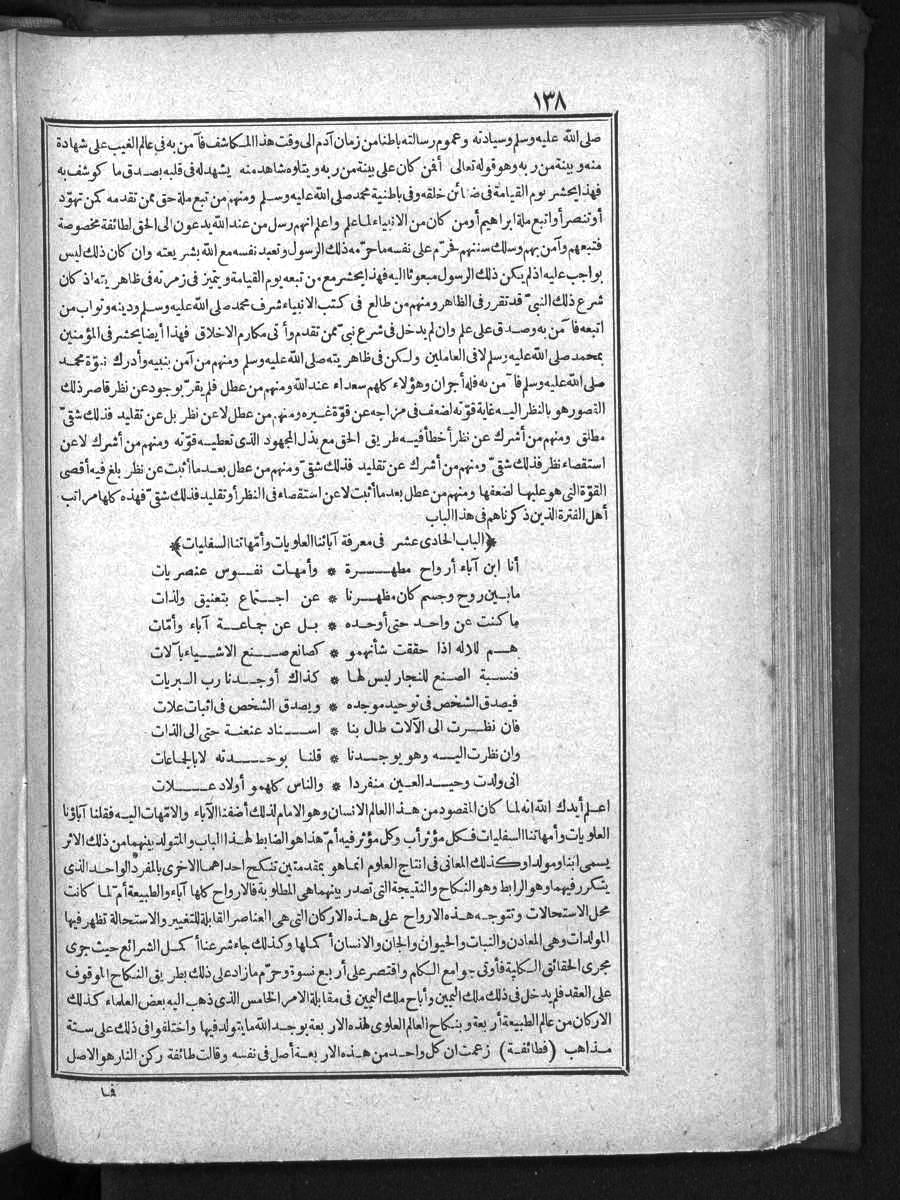 ١٣٨
صلى الله عليه وسلم وسيادته وعموم رسالته باطنا من زمان آدم الى وقت هذا المكاشف فآمن به فى عالم الغيب على شهادة
منه وبينة من ربه وهو قوله تعالى أفمن كان على بينة من ربه ويتلوه شاهد منه يشهد له فى قلبه بصدق ما كوشف به
فهذا يحشر يوم القيامة فى ضنائن خلقه وفى باطنية محمد صلى الله عليه وسلم ومنهم من تبع ملة حق ممن تقدمه كمن تهوّد
أو تنصر أو اتبع ملة ابراهيم أو من كان من الانبياء لما علم واعلم انهم رسل من عند الله يدعون الى الحق لطائفة مخصوصة
فتبعهم وآمن بهم وسلك سننهم فحرّم على نفسه ما حرّمه ذلك الرسول وتعبد نفسه مع الله بشريعته وان كان ذلك ليس
بواجب عليه اذ لم يكن ذلك الرسول مبعوثا اليه فهذا يحشر مع من تبعه يوم القيامة ويتميز فى زمرته فى ظاهريته اذ كان
شرع ذلك النبىّ قد تقرر فى الظاهر ومنهم من طالع فى كتب الانبياء شرف محمد صلى الله عليه وسلم ودينه وثواب من
اتبعه فآمن به وصدق على علم وان لم يدخل فى شرع نبىّ ممن تقدم وأتى مكارم الاخلاق فهذا أيضا يحشر فى المؤمنين
بمحمد صلى الله عليه وسلم لا فى العاملين ولكن فى ظاهريته صلى الله عليه وسلم ومنهم من آمن بنبيه وأدرك نبوّة محمد
صلى الله عليه وسلم فآمن به فله أجران وهؤلاء كلهم سعداء عند الله ومنهم من عطل فلم يقرّ بوجود عن نظر قاصر ذلك
القصور هو بالنظر اليه غاية قوّته لضعف فى مزاجه عن قوّة غيره ومنهم من عطل لا عن نظر بل عن تقليد فذلك شقىّ
مطلق ومنهم من أشرك عن نظر أخطأ فيه طريق الحق مع بذل المجهود الذى تعطيه قوّته ومنهم من أشرك لا عن
استقصاء نظر فذلك شقىّ ومنهم من أشرك عن تقليد فذلك شقىّ ومنهم من عطل بعد ما أثبت عن نظر بلغ فيه أقصى
القوّة التى هو عليها لضعفها ومنهم من عطل بعد ما أثبت لا عن استقصاء فى النظر أو تقليد فذلك شقىّ فهذه كلها مراتب
أهل الفترة الذين ذكرناهم فى هذا الباب
﴿الباب الحادى عشر فى معرفة آبائنا العلويات وأمّهاتنا السفليات﴾
أنا ابن آباء أرواح مطهرة * وأمهات نفوس عنصريات
ما بين روح وجسم كان مظهرنا * عن اجتماع بتعنيق ولذات
ما كنت عن واحد حتى أوحده * بل عن جماعة آباء وأمّات
هم للاله اذا حققت شأنهمو * كصانع صنع الاشياء بآلات
فنسبة الصنع للنجار ليس لها * كذاك أوجدنا رب البريات
فيصدق الشخص فى توحيد موجده * ويصدق الشخص فى اثبات علات
فان نظرت الى الآلات طال بنا * اسناد عنعنة حتى الى الذات
وان نظرت اليه وهو يوجدنا * قلنا بوحدته لا بالجاعات
انى ولدت وحيد العين منفردا * والناس كلهمو أولاد علات
اعلم أيدك الله انه لما كان المقصود من هذا العالم الانسان وهو الامام لذلك أضفنا الآباء والامّهات اليه فقلنا آباؤنا
العلويات وأمهاتنا السفليات فكل مؤثر أب وكل مؤثر فيه أمّ هذا هو الضابط لهذا الباب والمتولد بينهما من ذلك الاثر
يسمى ابنا ومولدا وكذلك المعانى فى انتاج العلوم انما هو بمقدمتين تنكح احداهما الاخرى بالمفرد الواحد الذى
يتكرر فيهما وهو الرابط وهو النكاح والنتيجة التى تصدر بينهما هى المطلوبة فالارواح كلها آباء والطبيعة أمّ لما كانت
محل الاستحالات وتتوجه هذه الارواح على هذه الاركان التى هى العناصر القابلة للتغيير والاستحالة تظهر فيها
المولدات وهى المعادن والنبات والحيوان والجان والانسان أكملها وكذلك جاء شرعنا أكمل الشرائع حيث جرى
مجرى الحقائق الكلية فأوتى جوامع الكلم واقتصر على أربع نسوة وحرّم ما زاد على ذلك بطريق النكاح الموقوف
على العقد فلم يدخل فى ذلك ملك اليمين وأباح ملك اليمين فى مقابلة الامر الخامس الذى ذهب اليه بعض العلماء كذلك
الاركان من عالم الطبيعة أربعة وبنكاح العالم العلوى لهذه الاربعة يوجد الله ما يتولد فيها واختلفوا فى ذلك على ستة
مذاهب (فطائفة) زعمت ان كل واحد من هذه الاربعة أصل فى نفسه وقالت طائفة ركن النار هو الاصل
فما